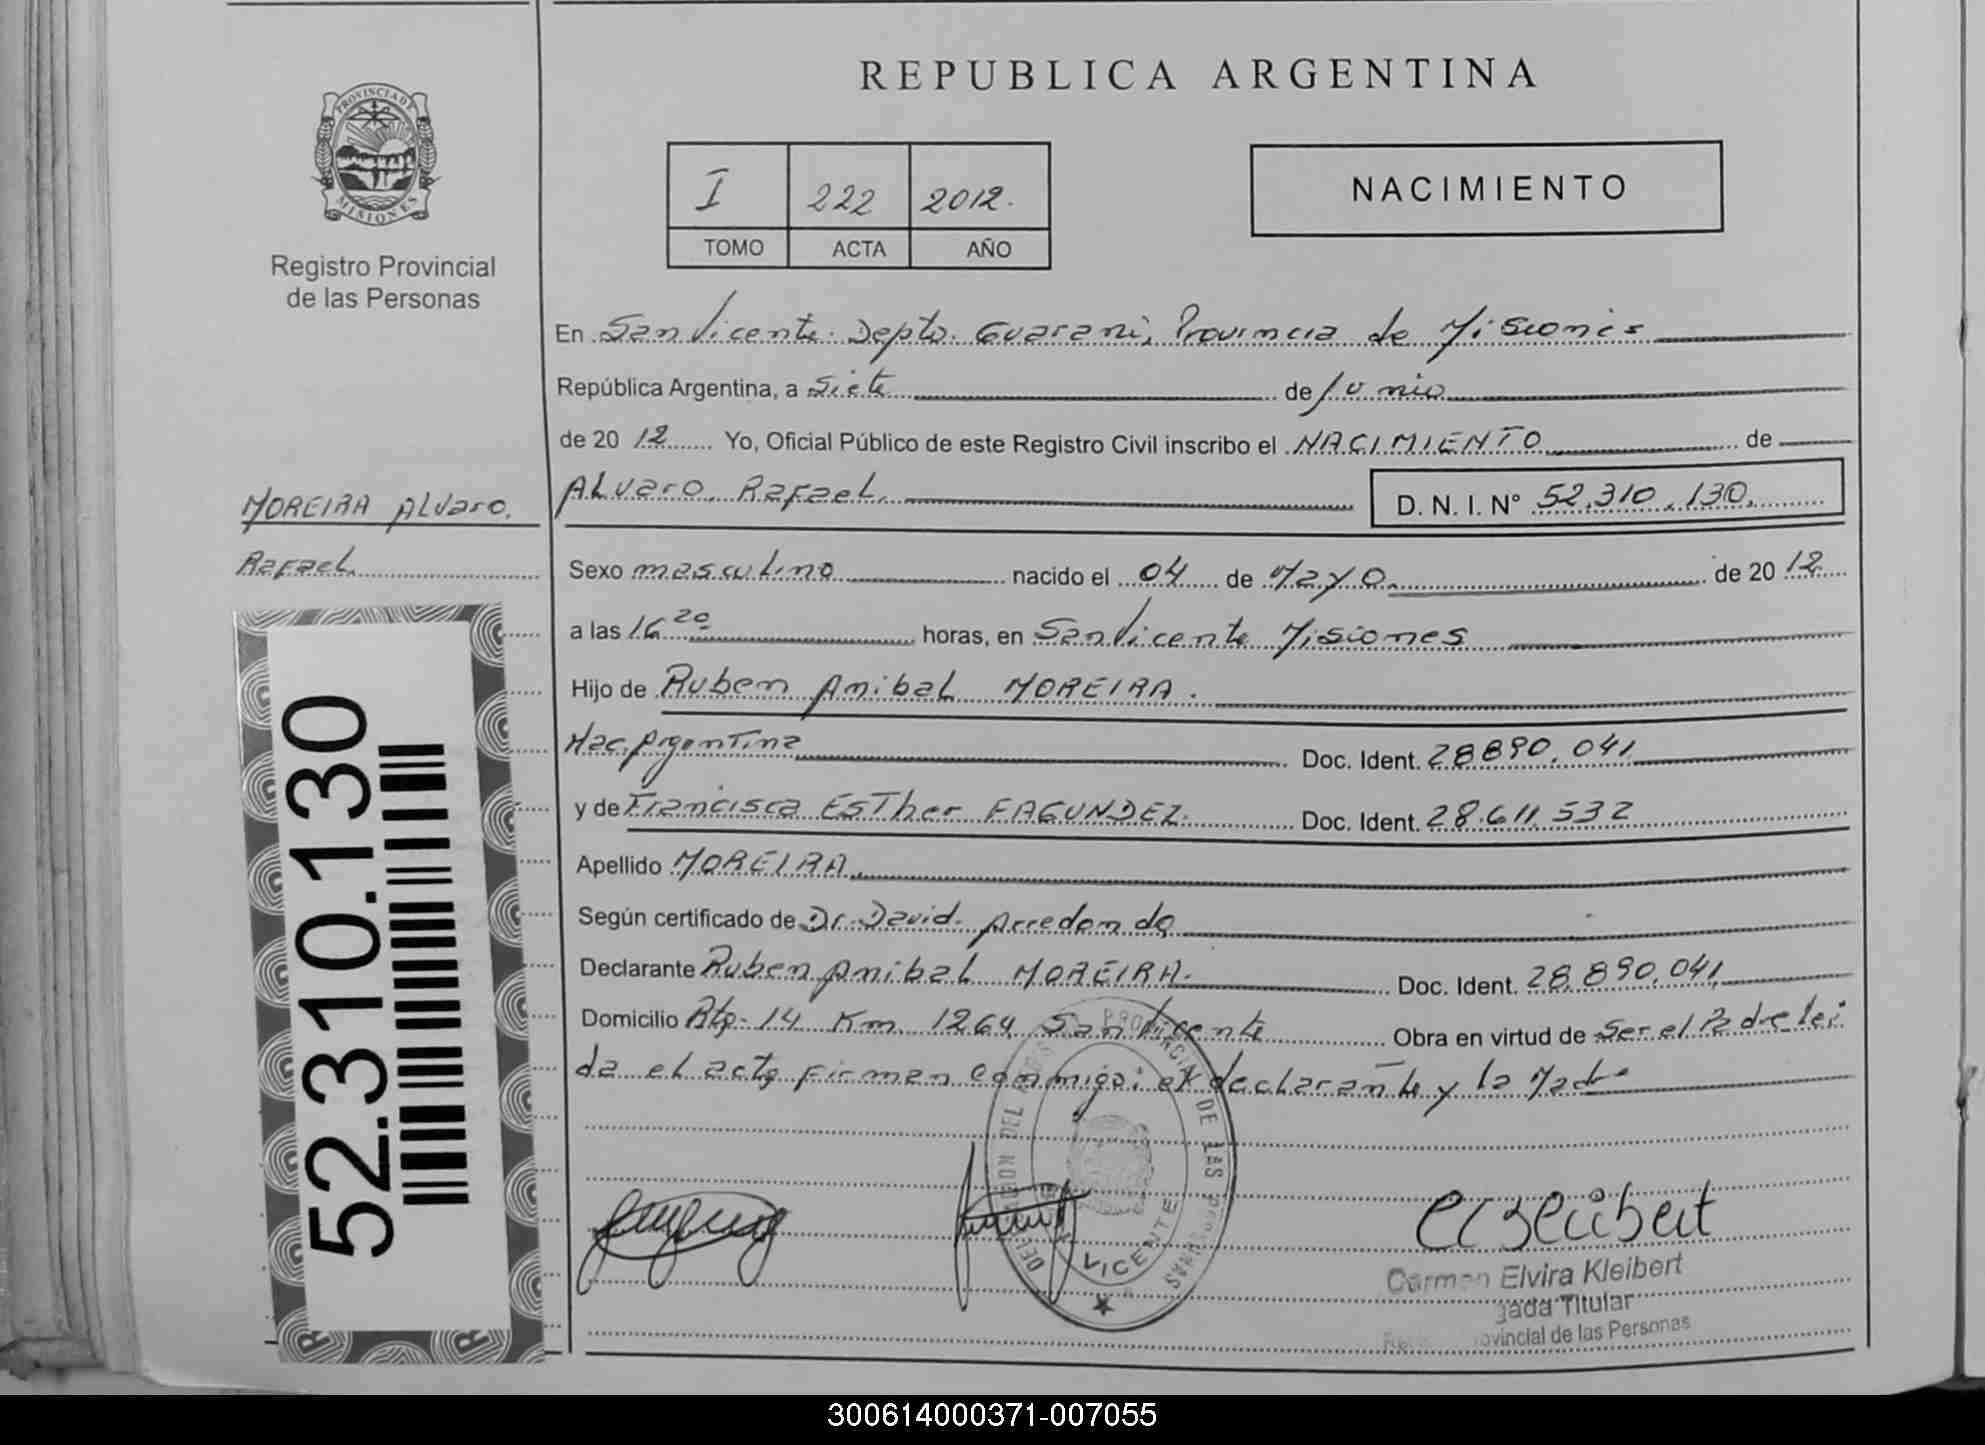 REPUBLICA ARGENTINA
PROVINCIA DE MISIONES
Registro Provincial
de las Personas
I 222 2012.
TOMO ACTA AÑO
NACIMIENTO
En San Vicente Depto. Guarani, Provincia de Misiones
República Argentina, a Siete de Junio
de 2012 Yo, Oficial Público de este Registro Civil inscribo el NACIMIENTO de
ALvaro Rafael. D. N. I. N° 52.310.130.
MOREIRA ALvaro.
RafaeL
Sexo masculino nacido el 04 de Mayo de 2012
a las 16 20 horas, en San Vicente Misiones
Hijo de Ruben Anibal MOREIRA.
Nac. Argentina Doc. Ident. 28890.041
y de Francisca Esther FAGUNDEZ Doc. Ident. 28.611.532
Apellido MOREIRA
Según certificado de Dr. David Arredondo
Declarante Ruben Anibal MOREIRA. Doc. Ident. 28.890.041
Domicilio Rta. 14 Km 1264 San Vicente Obra en virtud de Ser el P/ de lei
da el acta firman conmigo: el declarante y la Madre
52.310.130
PROVINCIAL DE LAS PERSONAS
VICENTE
Carmen Elvira Kleibert
gada Titular
ovincial de las Personas
300614000371-007055